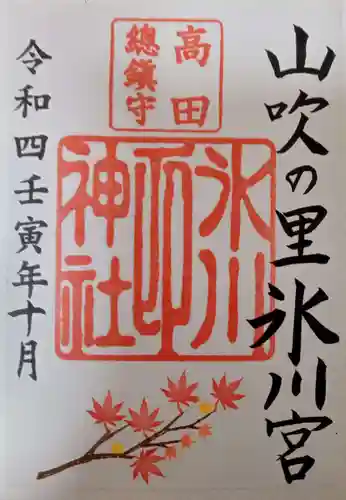 山吹の里氷川宮
高田
總鎮守
氷川
神社
令和四壬寅年十月